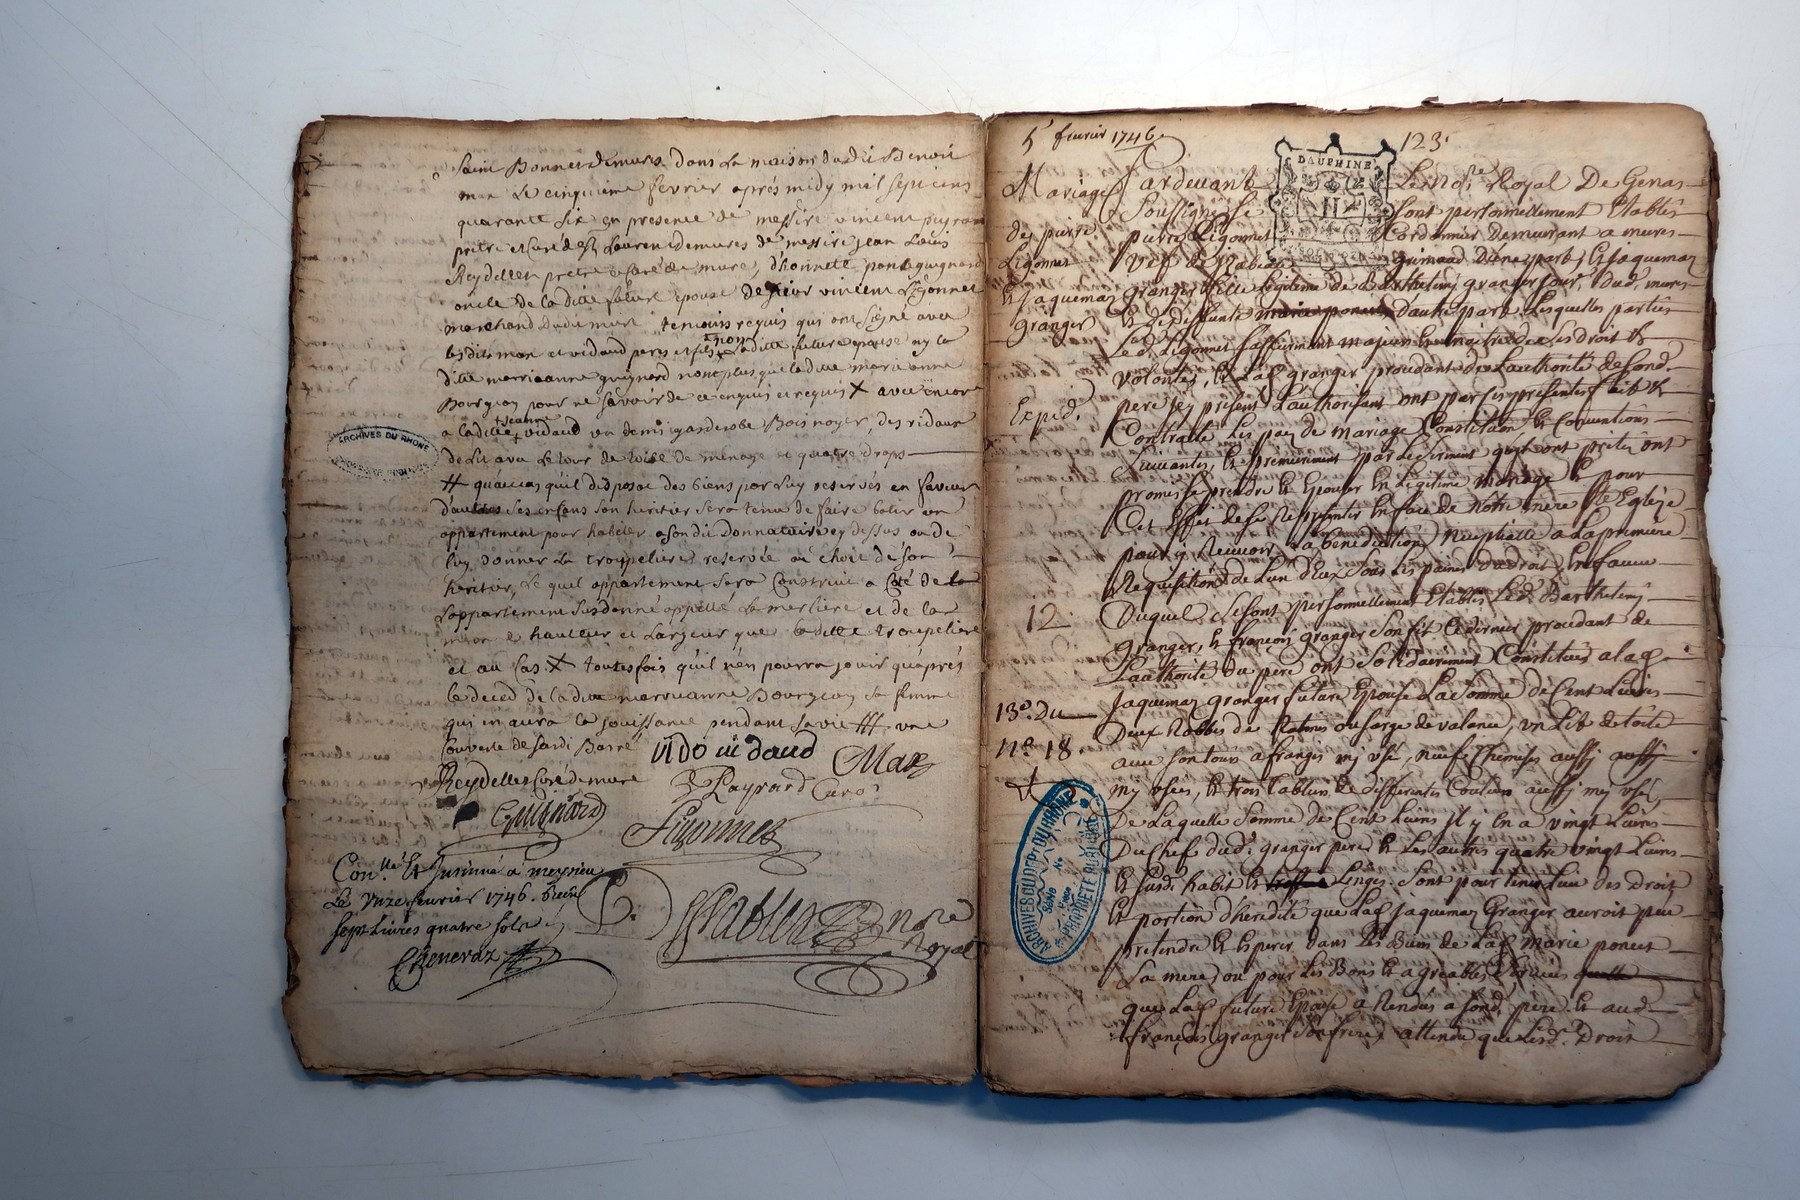 Saint Bonnet de mure dans la maison dudit Benoit
max le cinquieme fevrier aprés midy mil sept cens
quarante six en presence de messire vincent peyrard
prêtre et curé de St Laurent de mures de messire jean Louis
Reydellet prêtre et curé de mure, d'honnete guignard
oncle de la ditte future epouse de sieur vincent Ligonnet
marchand dudit mure temoins requis qui ont signé avec
lesdits max et vidaud pere et fils non la ditte future epouse ny la
ditte marrianne guignard non plus que la ditte marrianne
Bourgeon pour ne savoir de ce enquis et requis X avec encor
a la ditte jeanne vidaud un demi garderobe Bois noyer, des ridaux
de Lit avec le tour de toile de menage et quatre draps
# qu'au cas qu'il dispose des biens par luy reservés en faveur
d'autres ses enfans son heritier sera tenu de faire batir un
appartement pour habiter a son dit Donnataire cy dessus ou de
luy donner la troupeliere reservée au choix de son
heritier, le quel appartement sera Construit a Coté de la
l'appartement susdonné appellé la merliere et de la
même hauteur et Largeur que la ditte troupeliere
et au cas X toutes fois qu'il n'en pourra jouir qu'aprés
le deced de la ditte marrianne Bourgeon sa femme
qui en aura la jouissance pendant sa vie ### une
Couverte de
Reydellet Curé de mure
vidaud
Max
Payrard Curé
Guignard
Ligonnet
Con.lé Et Insinué à meysieu
Le Unze fevrier 1746. Reçu
sept Livres quatre sols
Chenevaz
nore Royal
ARCHIVES DU RHONE
5e fevrier 1746
123.
DAUPHINÉ
Mariage
de pierre
Ligonnet
et Jaquemaz
granger
Pardevant Le nore Royal De Genas
soussigné se sont personnellement Etablis
pierre Ligonnet Cordonnier Demeurant a mures
grimaud D'une part; Et Jaquemaz
granger fille Legitime de Barthelemy granger dud. mures
Et de deffunte marie poncet D'autre part Lesquelles parties
Led. Ligonnet Affirmant majeur Et maitre de Ses Droit Et
Volontés, Et Lad. granger procedant de L'authorité de Sond.
Exped.
pere icy présent L'authorisant ont par ces presentes fait Et
Contracté Les pac de mariage Constitution Et Conventions
Suivantes, Et premierement par Le Serment qu'ont prêté ont
promis Se prendre Et Epouser En Legitime mariage Et pour
Cet Effet de Se Representer En face de Nôtre mere Ste Eglize
pour y Recevoir La benediction Nuptialle a La premiere
Requisition de L'un D'Eux Sous Les peines du Droit, En faveur
12
Duquel Se Sont personnellement Etablis Led. Barthelemy
granger, Et françois granger Son fils Ce dernier procedant de
L'authorité du pere ont Solidairement Constitués a Lad.
Jaquemaz granger future Epouse La Somme de Cent Livres
13e. Du
11e. 18
Deux Robbes de Ratines ou Sarge de valence, un Lit de toile
avec Son tour a franges my usé, neuf Chemises aussy
my usées, Et trois tabliers de differentes Couleurs aussy my usés,
De Laquelle Somme de Cent Livres il y En a vingt Livres
Du Chef dud. granger pere Et Les autres quatre vingt Livres
Et Susd. habit Et Linges Sont pour tenir Lieu des Droit
Et portion d'heredité que Lad. Jaquemaz Granger auroit peu
pretendre Et Esperer dans Les Biens de Lad. Marie poncet
Sa mere ou pour Les Bons Et agreables Services
que Lad. future Epouse a Rendus a Sond. pere Et aud.
françois granger Son frere, attendu que Lesd. Droit
ARCHIVES DU DÉPt DU RHÔNE
Série
No
PROPRIÉTÉ PUBLIQUE